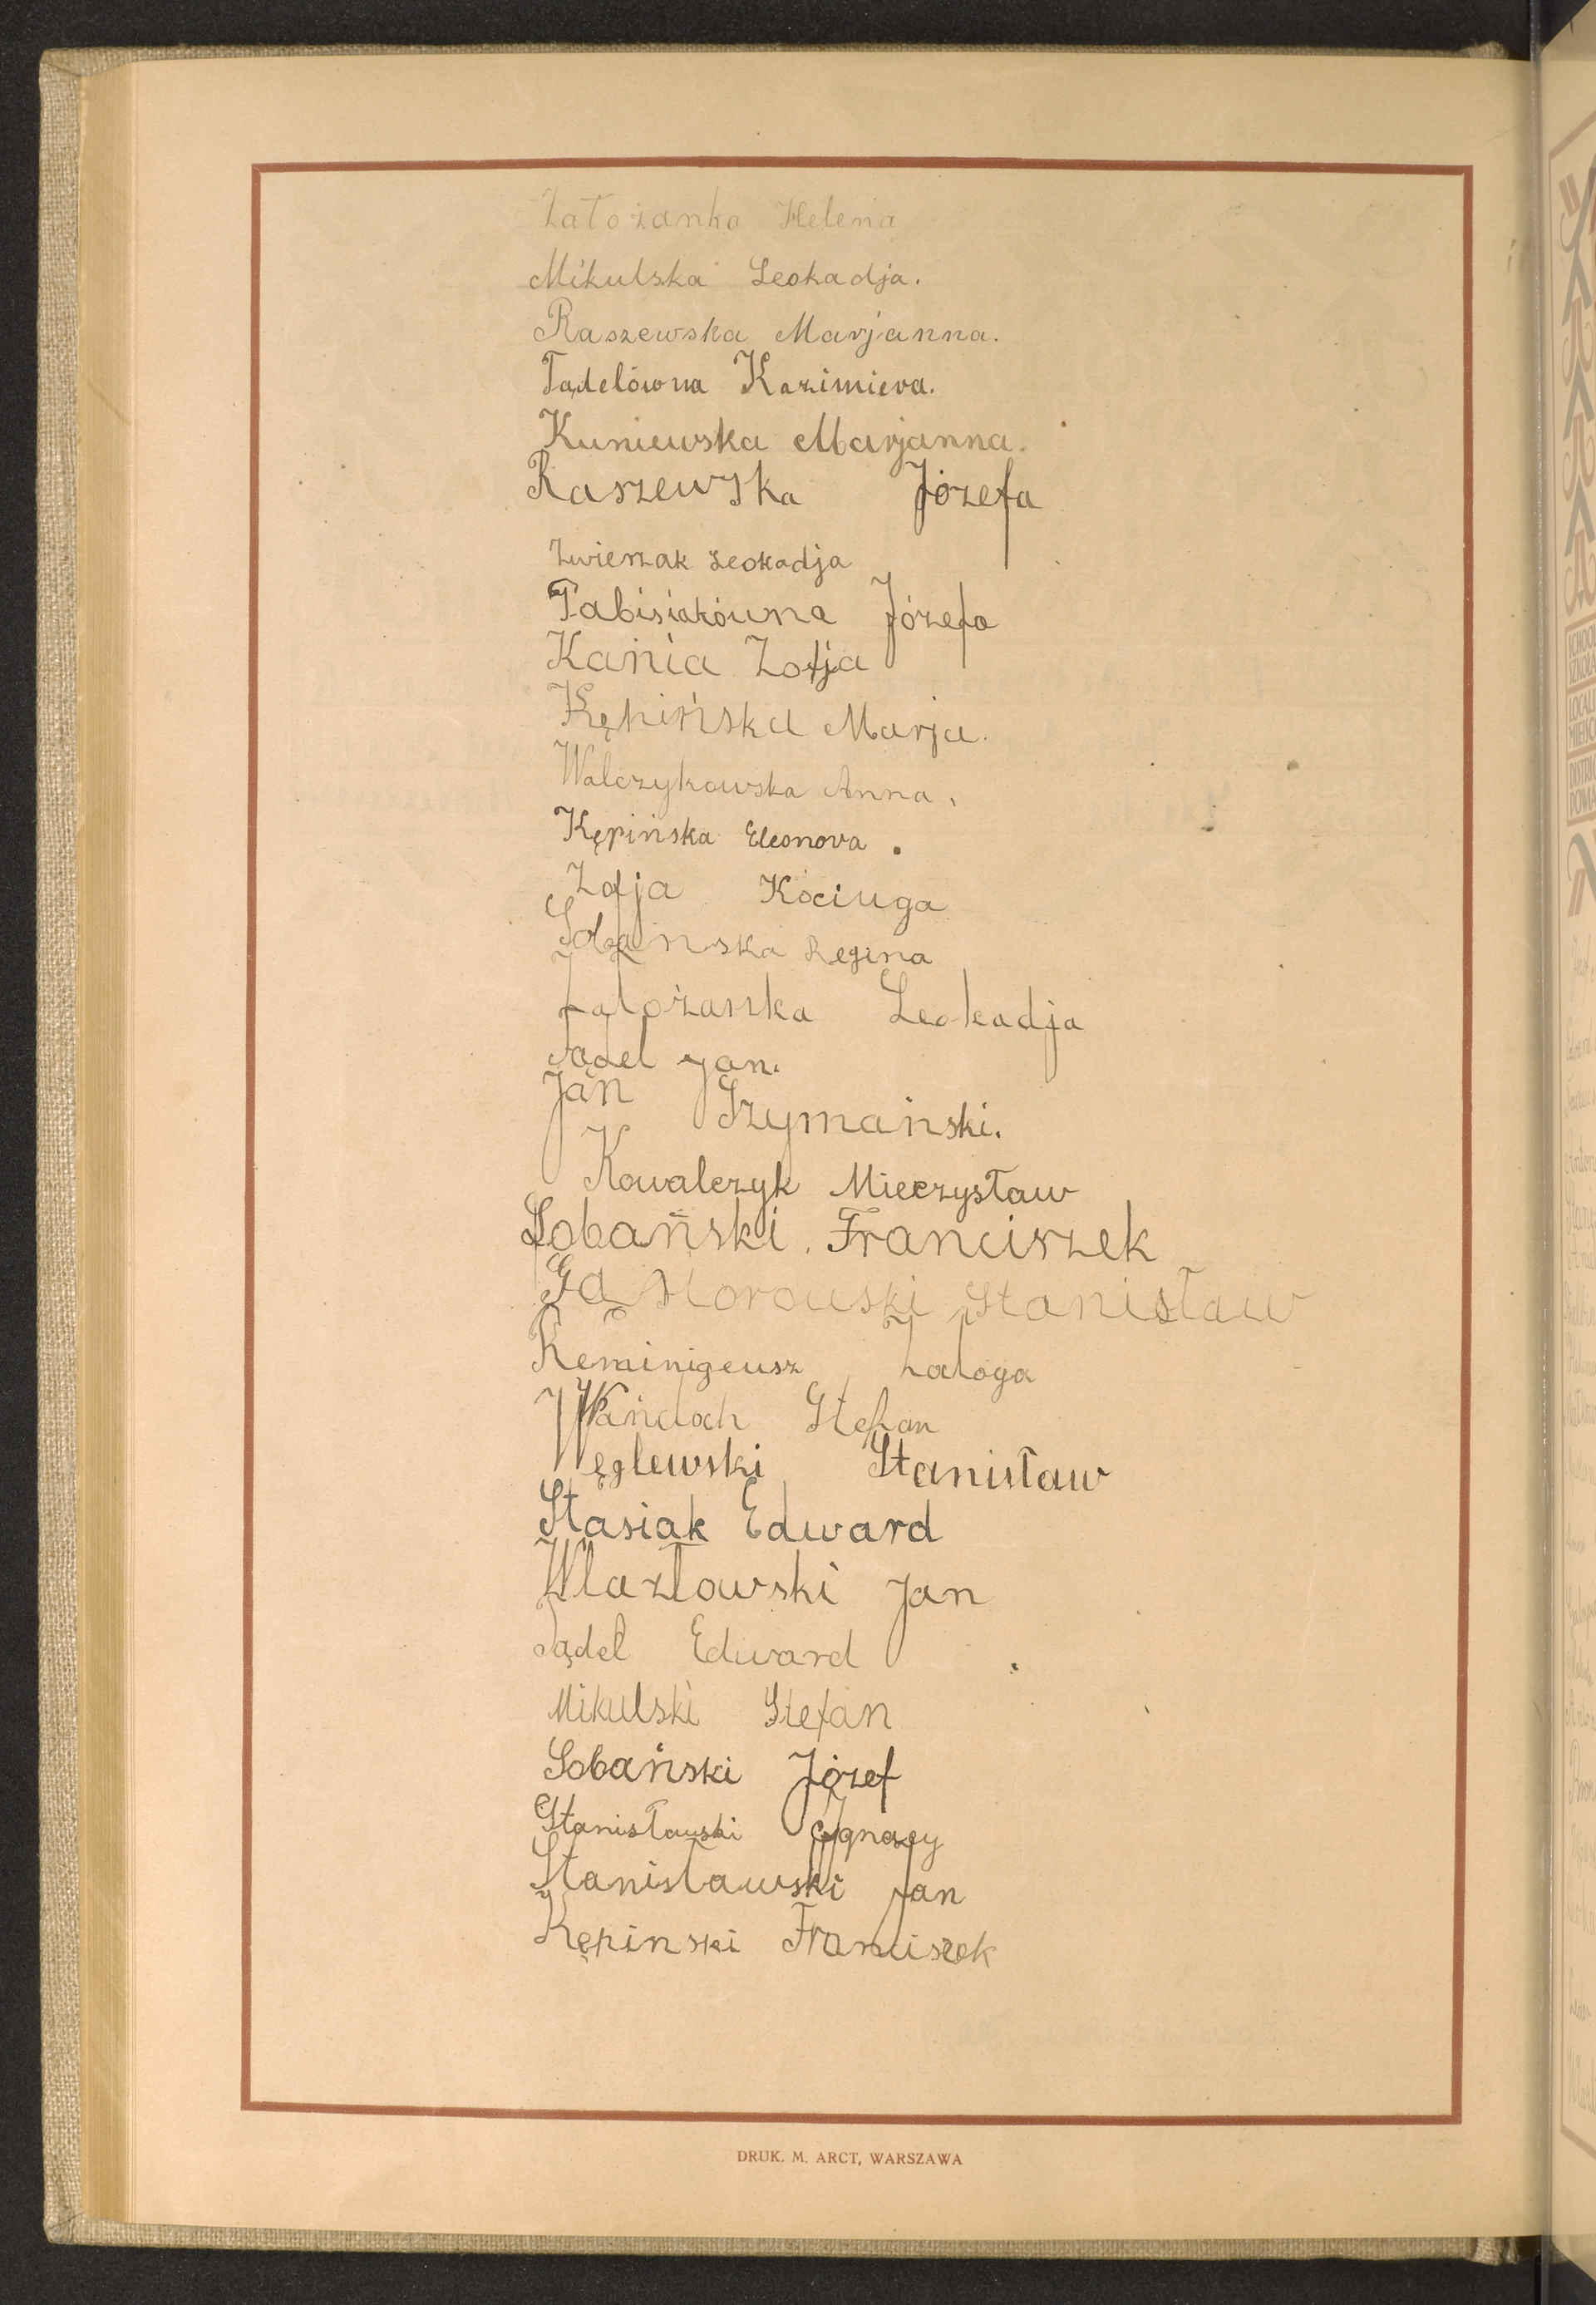 Załozanka Helena
Mikulska Leokadja.
Raszewska Marjanna.
Tądelówna Kazimiera.
Kuniewska Marjanna.
Raszewska Józefa
Zwierzak Leokadja
Tabisiakówna Józefa
Kania Zofja
Kępińska Marja.
Walczykowska Anna.
Kępińska Eleonora.
Zofja Kociuga
Sobańska Regina
Założanka Leokadja
Tądel Jan.
Jan Szymański.
Kowalczyk Mieczysław
Sobański Franciszek
Gąstorowski Stanisław
Reminigeusz Załoga
Wandoch Stefan
Węglewski Stanisław
Stasiak Edward
Wlazłowski Jan
Tądel Edward
Mikulski Stefan
Sobański Józef
Stanisławski Ignacy
Stanisławski Jan
Kępinski Franciszek
DRUK. M. ARCT, WARSZAWA
SCHOOL
SZKOŁA